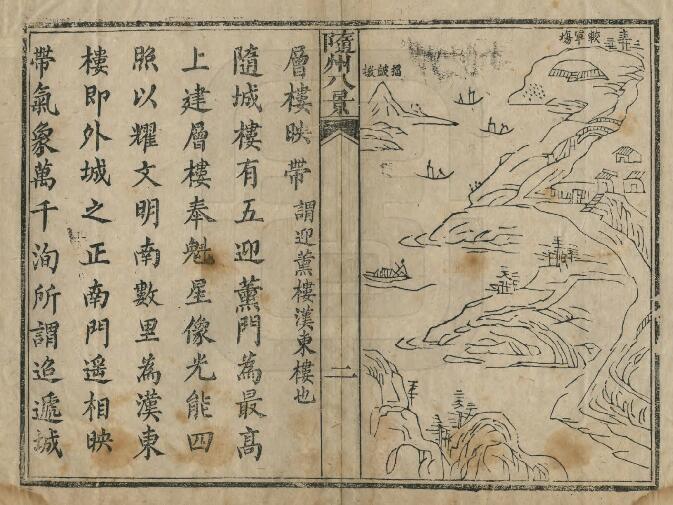 較軍場
隨州八景
二
層樓映帶謂迎薰樓漢東樓也
隨城樓有五迎薰門為最高
上建層樓奉魁星像光能四
照以耀文明南數里為漢東
樓即外城之正南門遥相映
帶氣象萬千洵所謂迢遞城